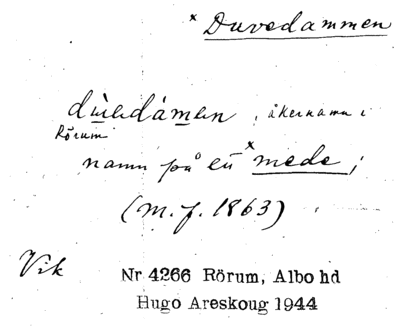 × Duvedammen
dùvedámen, åkernamn i
Rörum
namn på en × mede;
(m. f. 1863)
Vik
Nr 4266 Rörum, Albo hd
Hugo Areskoug 1944